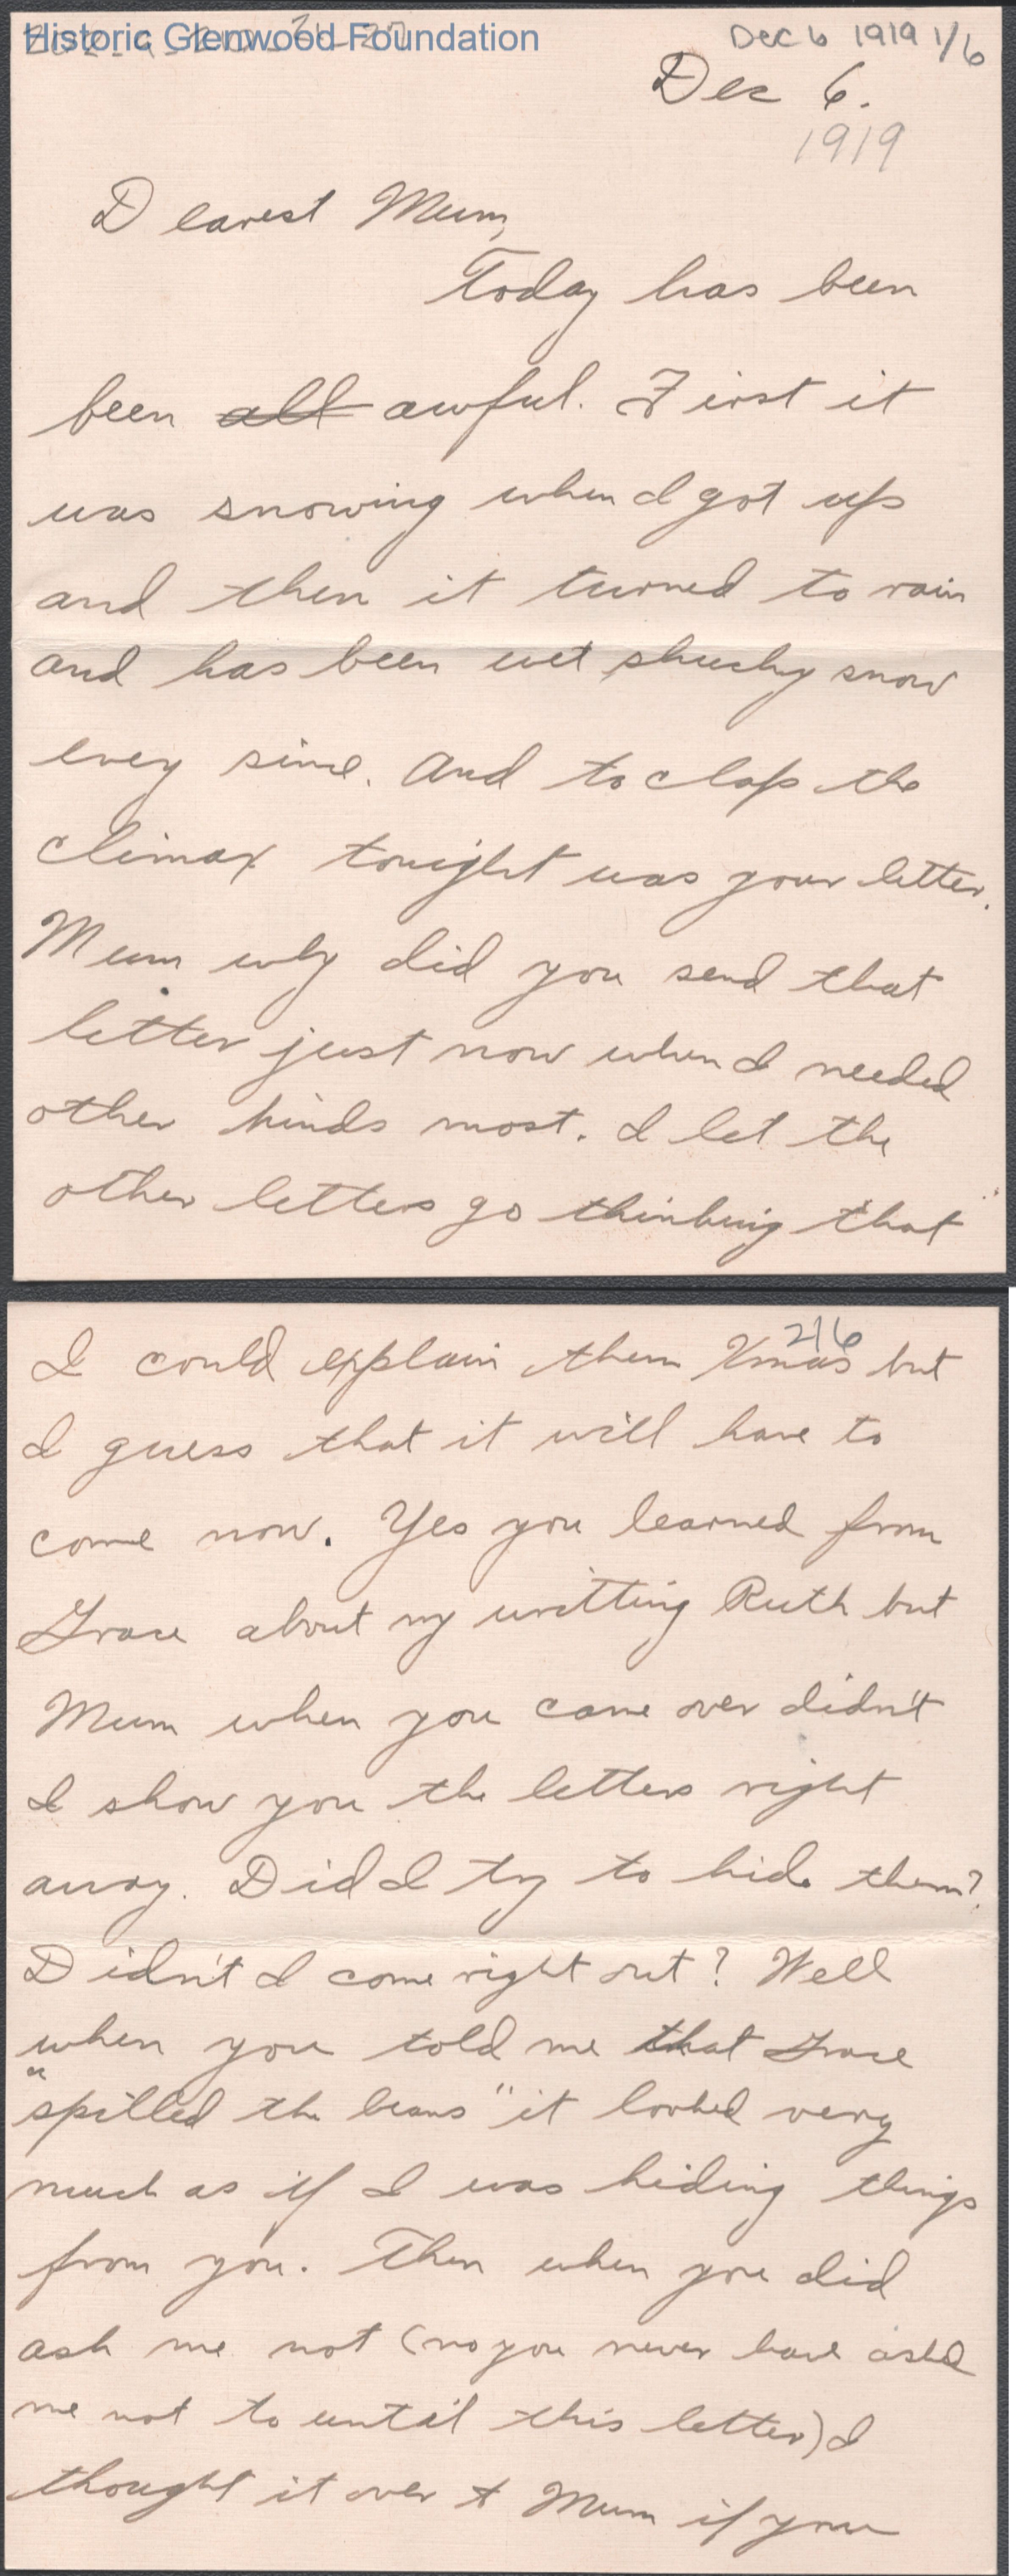 Historic Glenwood Foundation
Dec 6 1919 1/6
Dec 6.
1919
Dearest Mum,
Today has been
been all awful. First it
was snowing when I got up
and then it turned to rain
and has been wet slushy snow
evey sinc. And to clap the
climax tonight was your letter.
Mum why did you send that
letter just now when I needed
other kinds most. I let the
other letters go thinking that
2/6
I could explain them Xmas but
I guess that it will have to
come now. Yes you learned from
Grace about my writting Ruth but
Mum when you came over didn't
I show you the letters right
away. Did I try to hide them?
Didn't I come right out? Well
when you told me that Grace
"spilled the beans" it looked very
much as if I was hiding things
from you. Then when you did
ask me not (no you never have asked
me not to until this letter) I
thought it over & Mum if you